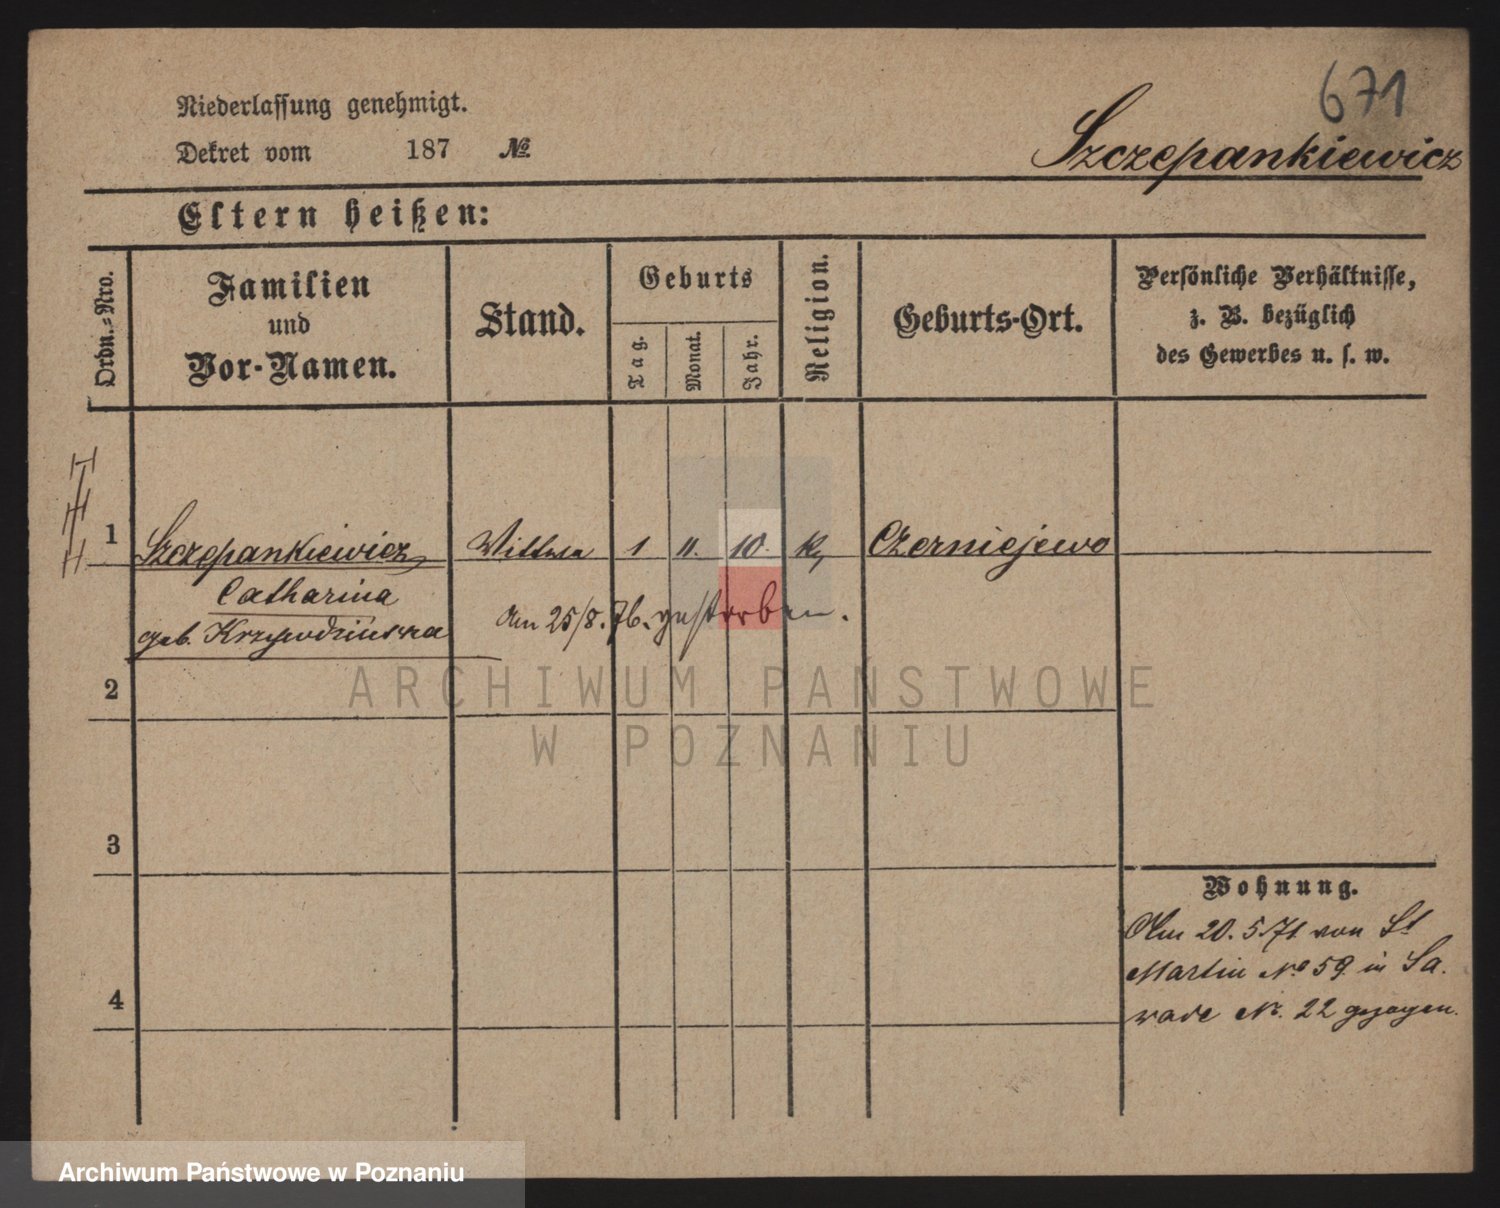 671
Niederlassung genehmigt.
Dekret vom 187 №
Szczepankiewicz
Eltern heißen:
Ordn.-Nro.
Familien
und
Vor-Namen.
Stand.
Geburts
Tag.
Monat.
Jahr.
Religion.
Geburts-Ort.
Persönliche Verhältnisse,
z. B. bezüglich
des Gewerbes u. s. w.
1 Szczepankiewicz Wittwe 1 11. 10. k, Czerniejewo
Catharina
geb. Krzywdzinska
Am 25/8. 76. gestorben.
2
ARCHIWUM PAŃSTWOWE
W POZNANIU
3
Wohnung.
Am 20. 5. 71 von St
Martin No 59 in Sa.
4
wade No. 22 gezogen.
Archiwum Państwowe w Poznaniu